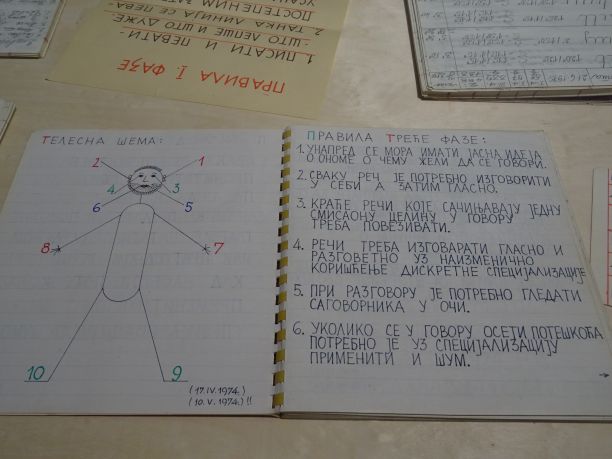 ПРАВИЛА I. ФАЗЕ
1. ПИСАТИ И ПЕВАТИ-
-ШТО ЛЕПШЕ И ШТО ДУЖЕ.
2. ТАНКА ЛИНИЈА СЕ ПЕВА-
ПОСТЕПЕНИМ
ТЕЛЕСНА ШЕМА:
2 1
4 3
6 5
8 7
10 9
(17. IV. 1974.)
(10. V. 1974.)!!
ПРАВИЛА ТРЕЋЕ ФАЗЕ:
1. УНАПРЕД СЕ МОРА ИМАТИ ЈАСНА ИДЕЈА
О ОНОМЕ О ЧЕМУ ЖЕЛИ ДА СЕ ГОВОРИ.
2. СВАКУ РЕЧ ЈЕ ПОТРЕБНО ИЗГОВОРИТИ
У СЕБИ А ЗАТИМ ГЛАСНО.
3. КРАЋЕ РЕЧИ КОЈЕ САЧИЊАВАЈУ ЈЕДНУ
СМИСАОНУ ЦЕЛИНУ У ГОВОРУ
ТРЕБА ПОВЕЗИВАТИ.
4. РЕЧИ ТРЕБА ИЗГОВАРАТИ ГЛАСНО И
РАЗГОВЕТНО УЗ НАИЗМЕНИЧНО
КОРИШЋЕЊЕ ДИСКРЕТНЕ СПЕЦИЈАЛИЗАЦИЈЕ
5. ПРИ РАЗГОВОРУ ЈЕ ПОТРЕБНО ГЛЕДАТИ
САГОВОРНИКА У ОЧИ.
6. УКОЛИКО СЕ У ГОВОРУ ОСЕТИ ПОТЕШКОЋА
ПОТРЕБНО ЈЕ УЗ СПЕЦИЈАЛИЗАЦИЈУ
ПРИМЕНИТИ И ШУМ.